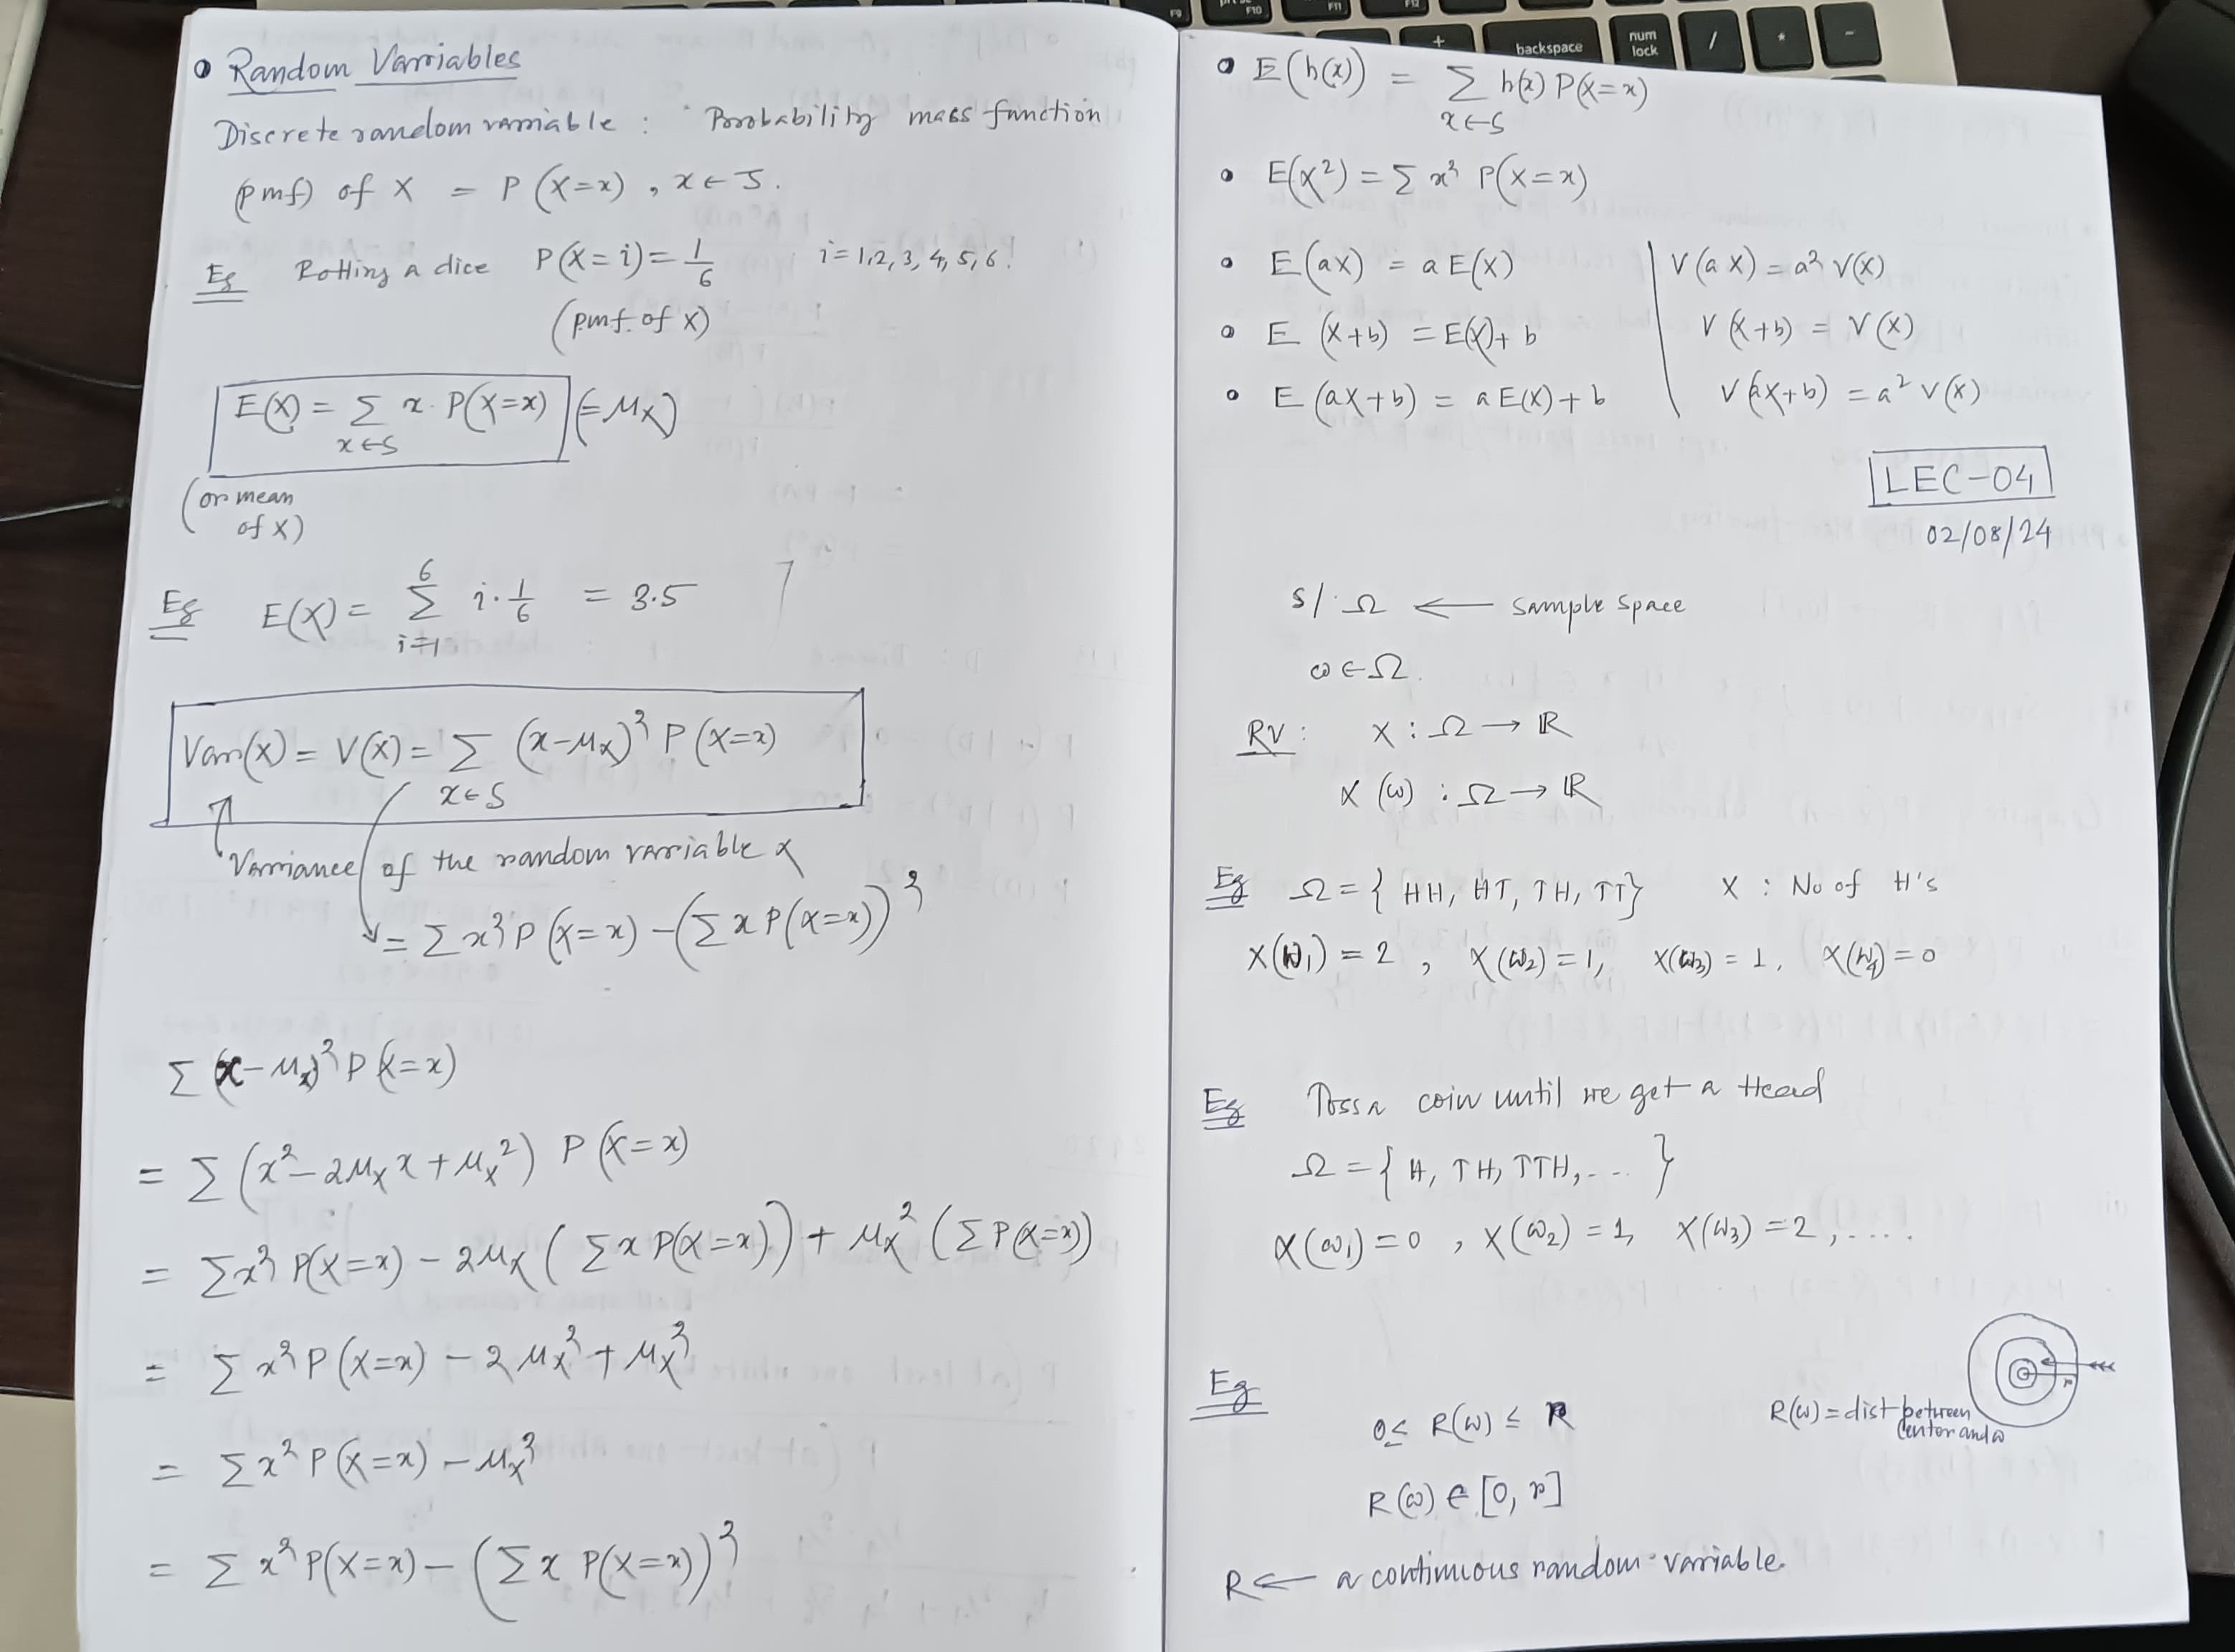 F9
prt sc
F10
F11
F12
+
backspace
num
lock
/
*
-
• Random Variables
Discrete random variable : Probability mass function
(pmf) of X = P(X=x), x∈S.
Eg Rolling a dice P(X=i) = 1/6 i=1,2,3,4,5,6
(pmf of X)
E(X) = Σ x·P(X=x) (=μX)
x∈S
(or mean
of X)
Eg E(X) = Σ i·1/6 = 3.5
6
i=1
Var(X) = V(X) = Σ (x-μX)² P(X=x)
x∈S
Variance of the random variable X
= Σx² P(X=x) - (Σ x P(X=x))²
Σ (x-μx)² P(X=x)
= Σ (x² - 2μX x + μX²) P(X=x)
= Σx² P(X=x) - 2μX (Σx P(X=x)) + μX² (Σ P(X=x))
= Σ x² P(X=x) - 2μX² + μX²
= Σx² P(X=x) - μX²
= Σ x² P(X=x) - (Σ x P(X=x))²
• E(h(x)) = Σ h(x) P(X=x)
x∈S
• E(X²) = Σ x² P(X=x)
• E(aX) = a E(X) | V(aX) = a² V(X)
• E(X+b) = E(X)+b | V(X+b) = V(X)
• E(aX+b) = a E(X)+b | V(aX+b) = a² V(X)
LEC-04
02/08/24
S/Ω ← sample space
ω∈Ω.
RV : X : Ω → ℝ
X(ω) : Ω → ℝ
Eg Ω = { HH, HT, TH, TT} X : No of H's
X(ω₁) = 2, X(ω₂) = 1, X(ω₃) = 1, X(ω₄) = 0
Eg Toss a coin until we get a Head
Ω = { H, TH, TTH, ... }
X(ω₁) = 0, X(ω₂) = 1, X(ω₃) = 2, ....
Eg
r
0 ≤ R(ω) ≤ r
R(ω) = dist between
center and ω
R(ω) ∈ [0, r]
R ← a continuous random variable